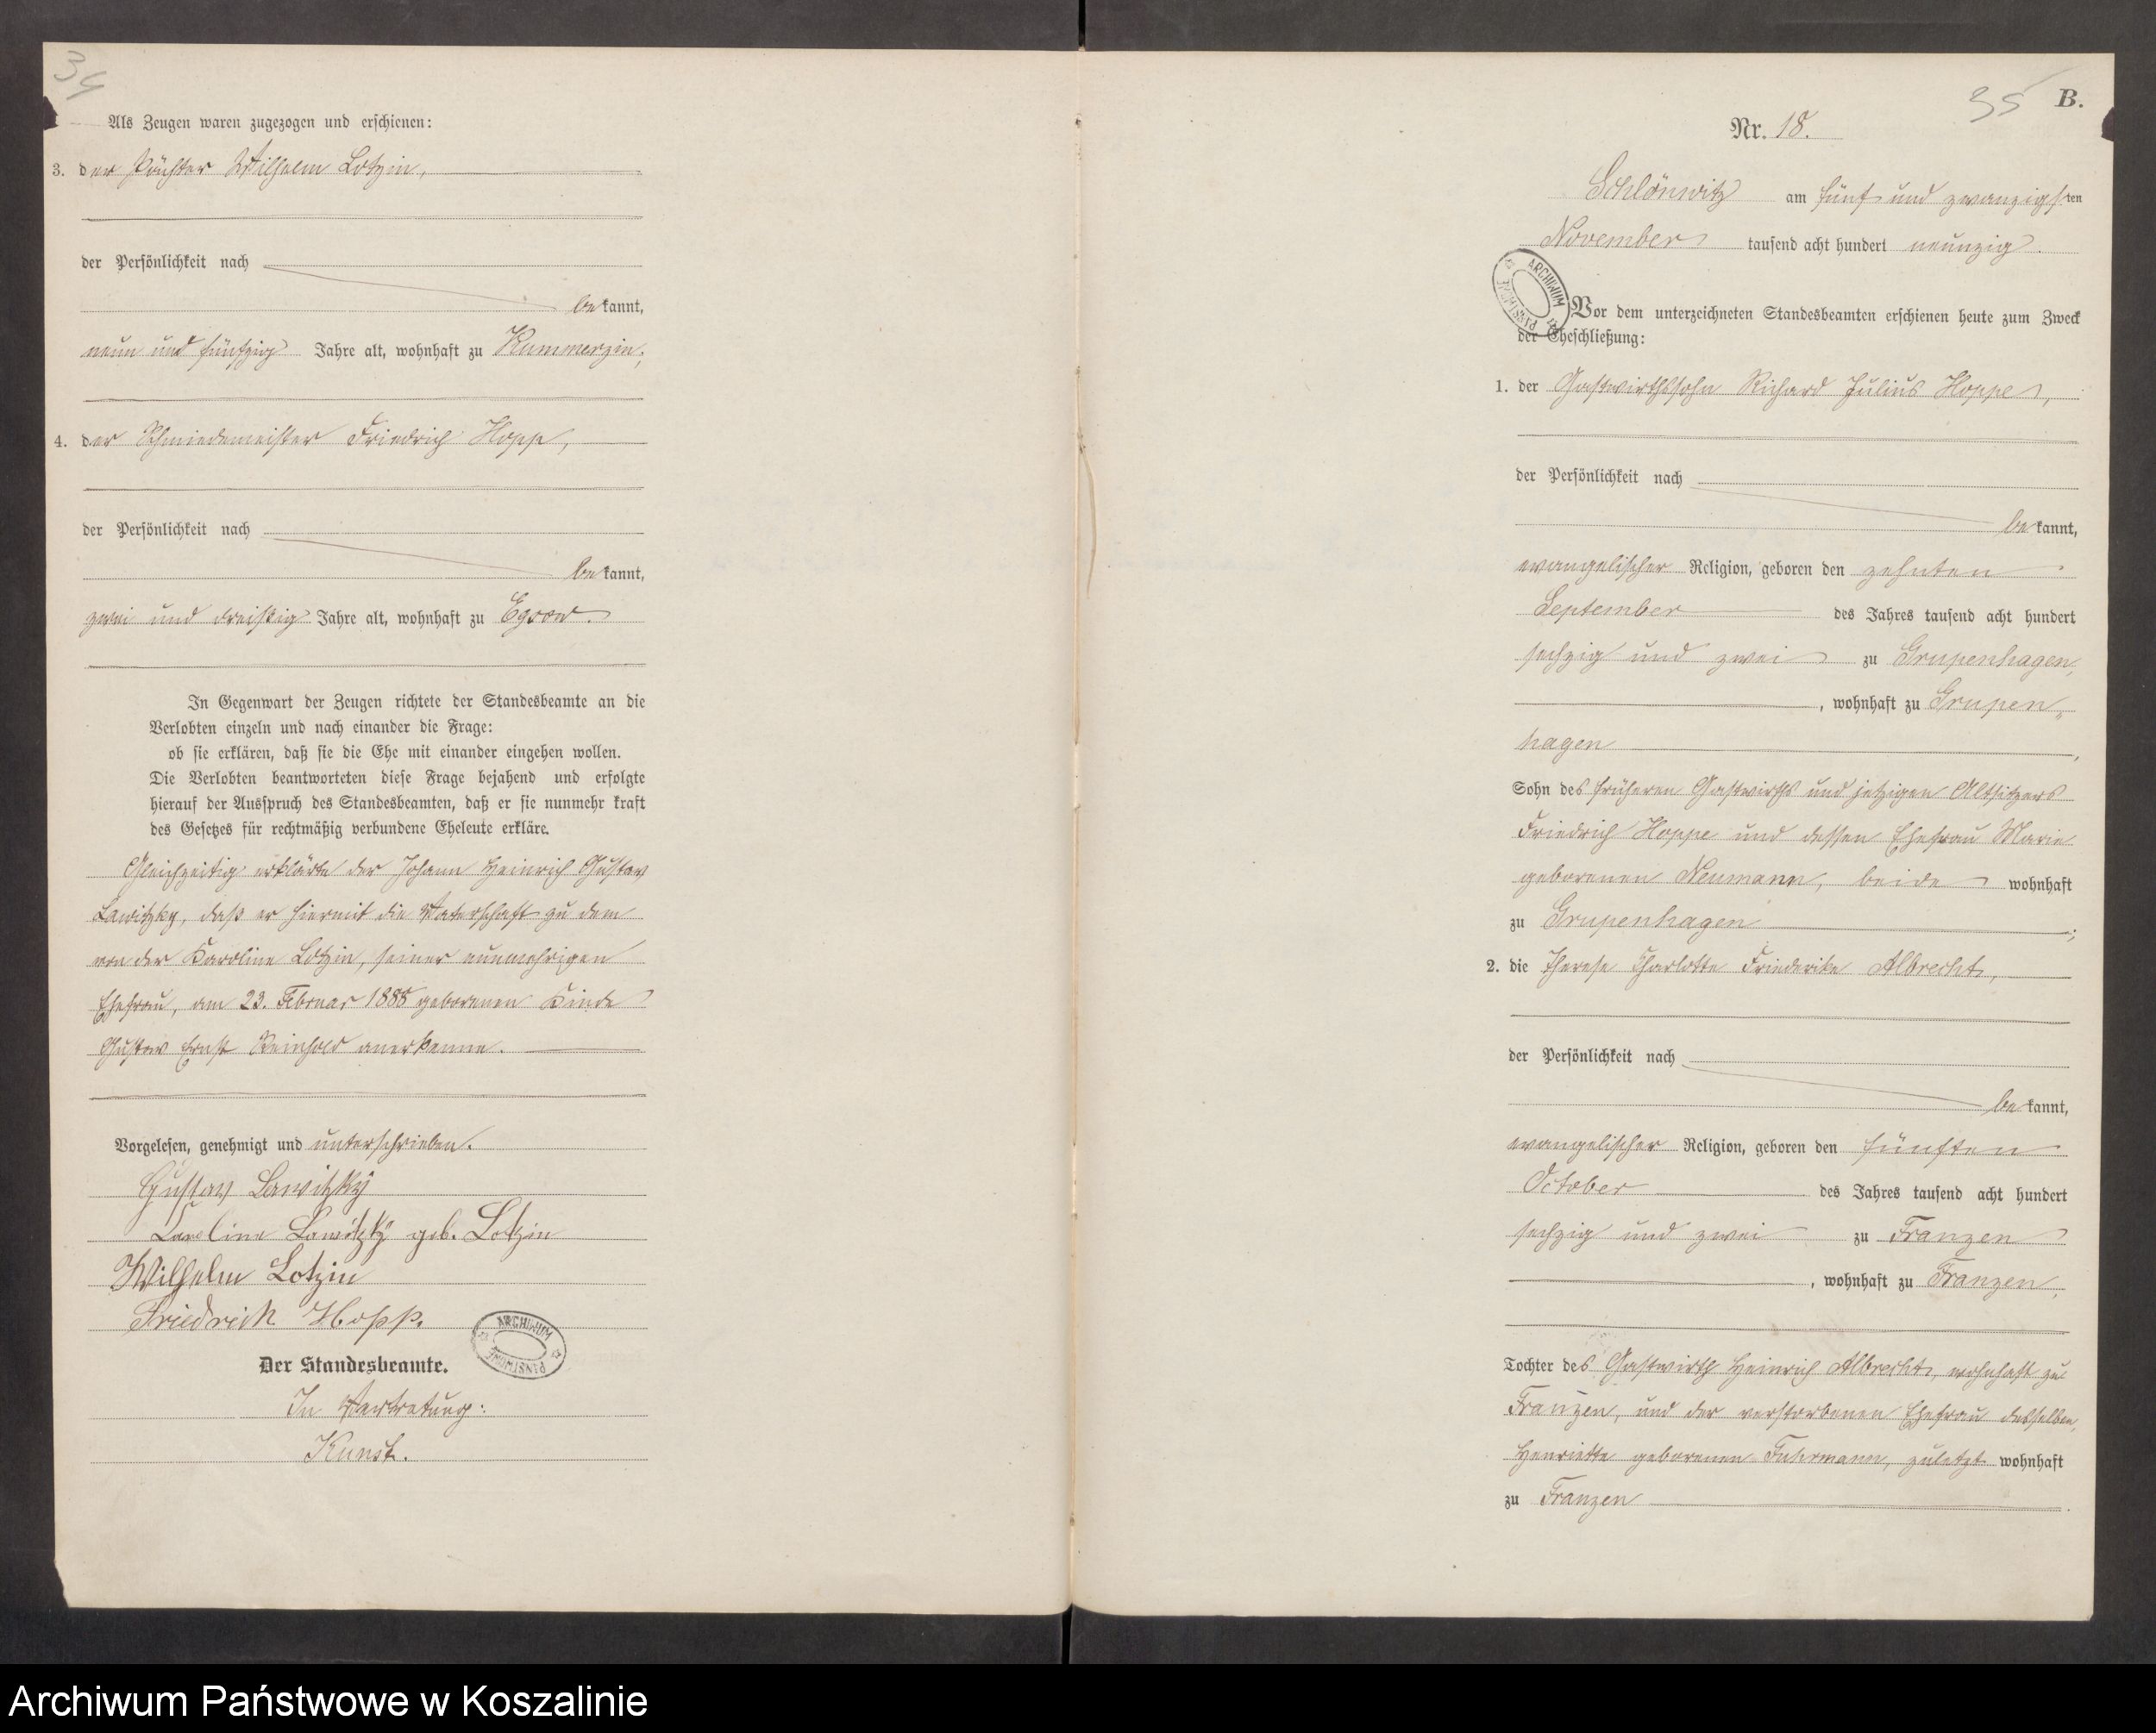 34
Als Zeugen waren zugezogen und erschienen:
3. der Pächter Wilhelm Lotzin,
der Persönlichkeit nach
bekannt,
neun und fünfzig Jahre alt, wohnhaft zu Kummerzin;
4. der Schmiedemeister Friedrich Hopp,
der Persönlichkeit nach
bekannt,
zwei und dreißig Jahre alt, wohnhaft zu Egsow.
In Gegenwart der Zeugen richtete der Standesbeamte an die
Verlobten einzeln und nach einander die Frage:
ob sie erklären, daß sie die Ehe mit einander eingehen wollen.
Die Verlobten beantworteten diese Frage bejahend und erfolgte
hierauf der Ausspruch des Standesbeamten, daß er sie nunmehr kraft
des Gesetzes für rechtmäßig verbundene Eheleute erkläre.
Gleichzeitig erklärte der Johann Heinrich Gustav
Lawitzky, daß er hiermit die Vaterschaft zu dem
von der Karoline Lotzin, seiner nunmehrigen
Ehefrau, am 23. Februar 1888 geborenen Kinde
Gustav Ernst Reinhold anerkenne.
Vorgelesen, genehmigt und unterschrieben.
Gustav Lawitzky
Karoline Lawitzky geb. Lotzin
Wilhelm Lotzin
Friedrich Hopp.
Der Standesbeamte.
In Vertretung:
Kunst.
ARCHIWUM PAŃSTWOWE
35 B.
Nr. 18.
Schlönwitz am fünf und zwanzigsten
November tausend acht hundert neunzig.
ARCHIWUM PAŃSTWOWE
Vor dem unterzeichneten Standesbeamten erschienen heute zum Zweck
der Eheschließung:
1. der Gastwirthssohn Richard Julius Hoppe,
der Persönlichkeit nach
bekannt,
evangelischer Religion, geboren den zehnten
September des Jahres tausend acht hundert
sechzig und zwei zu Grupenhagen,
, wohnhaft zu Grupen-
hagen,
Sohn des früheren Gastwirths und jetzigen Altsitzers
Friedrich Hoppe und dessen Ehefrau Marie
geborenen Neumann, beide wohnhaft
zu Grupenhagen;
2. die Therese Charlotte Friederike Albrecht,
der Persönlichkeit nach
bekannt,
evangelischer Religion, geboren den fünften
October des Jahres tausend acht hundert
sechzig und zwei zu Franzen
, wohnhaft zu Franzen,
Tochter des Gastwirth Heinrich Albrecht, wohnhaft zu
Franzen, und der verstorbenen Ehefrau desselben,
Henriette geborenen Fuhrmann, zuletzt wohnhaft
zu Franzen.
Archiwum Państwowe w Koszalinie